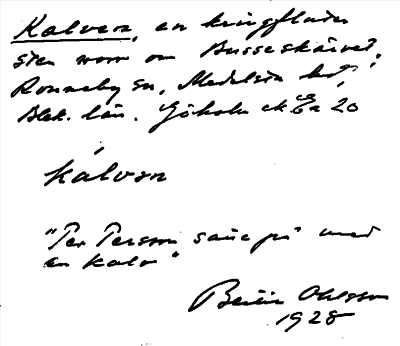 Kalven, en kringfluten
sten norr om Busseskäret,
Ronneby sn, Medelsta hd,
Blek. län. Sjökoln ek. Ca 20
kálvən
"Per Person satte på med
en kalv"
Ohlsson
1928